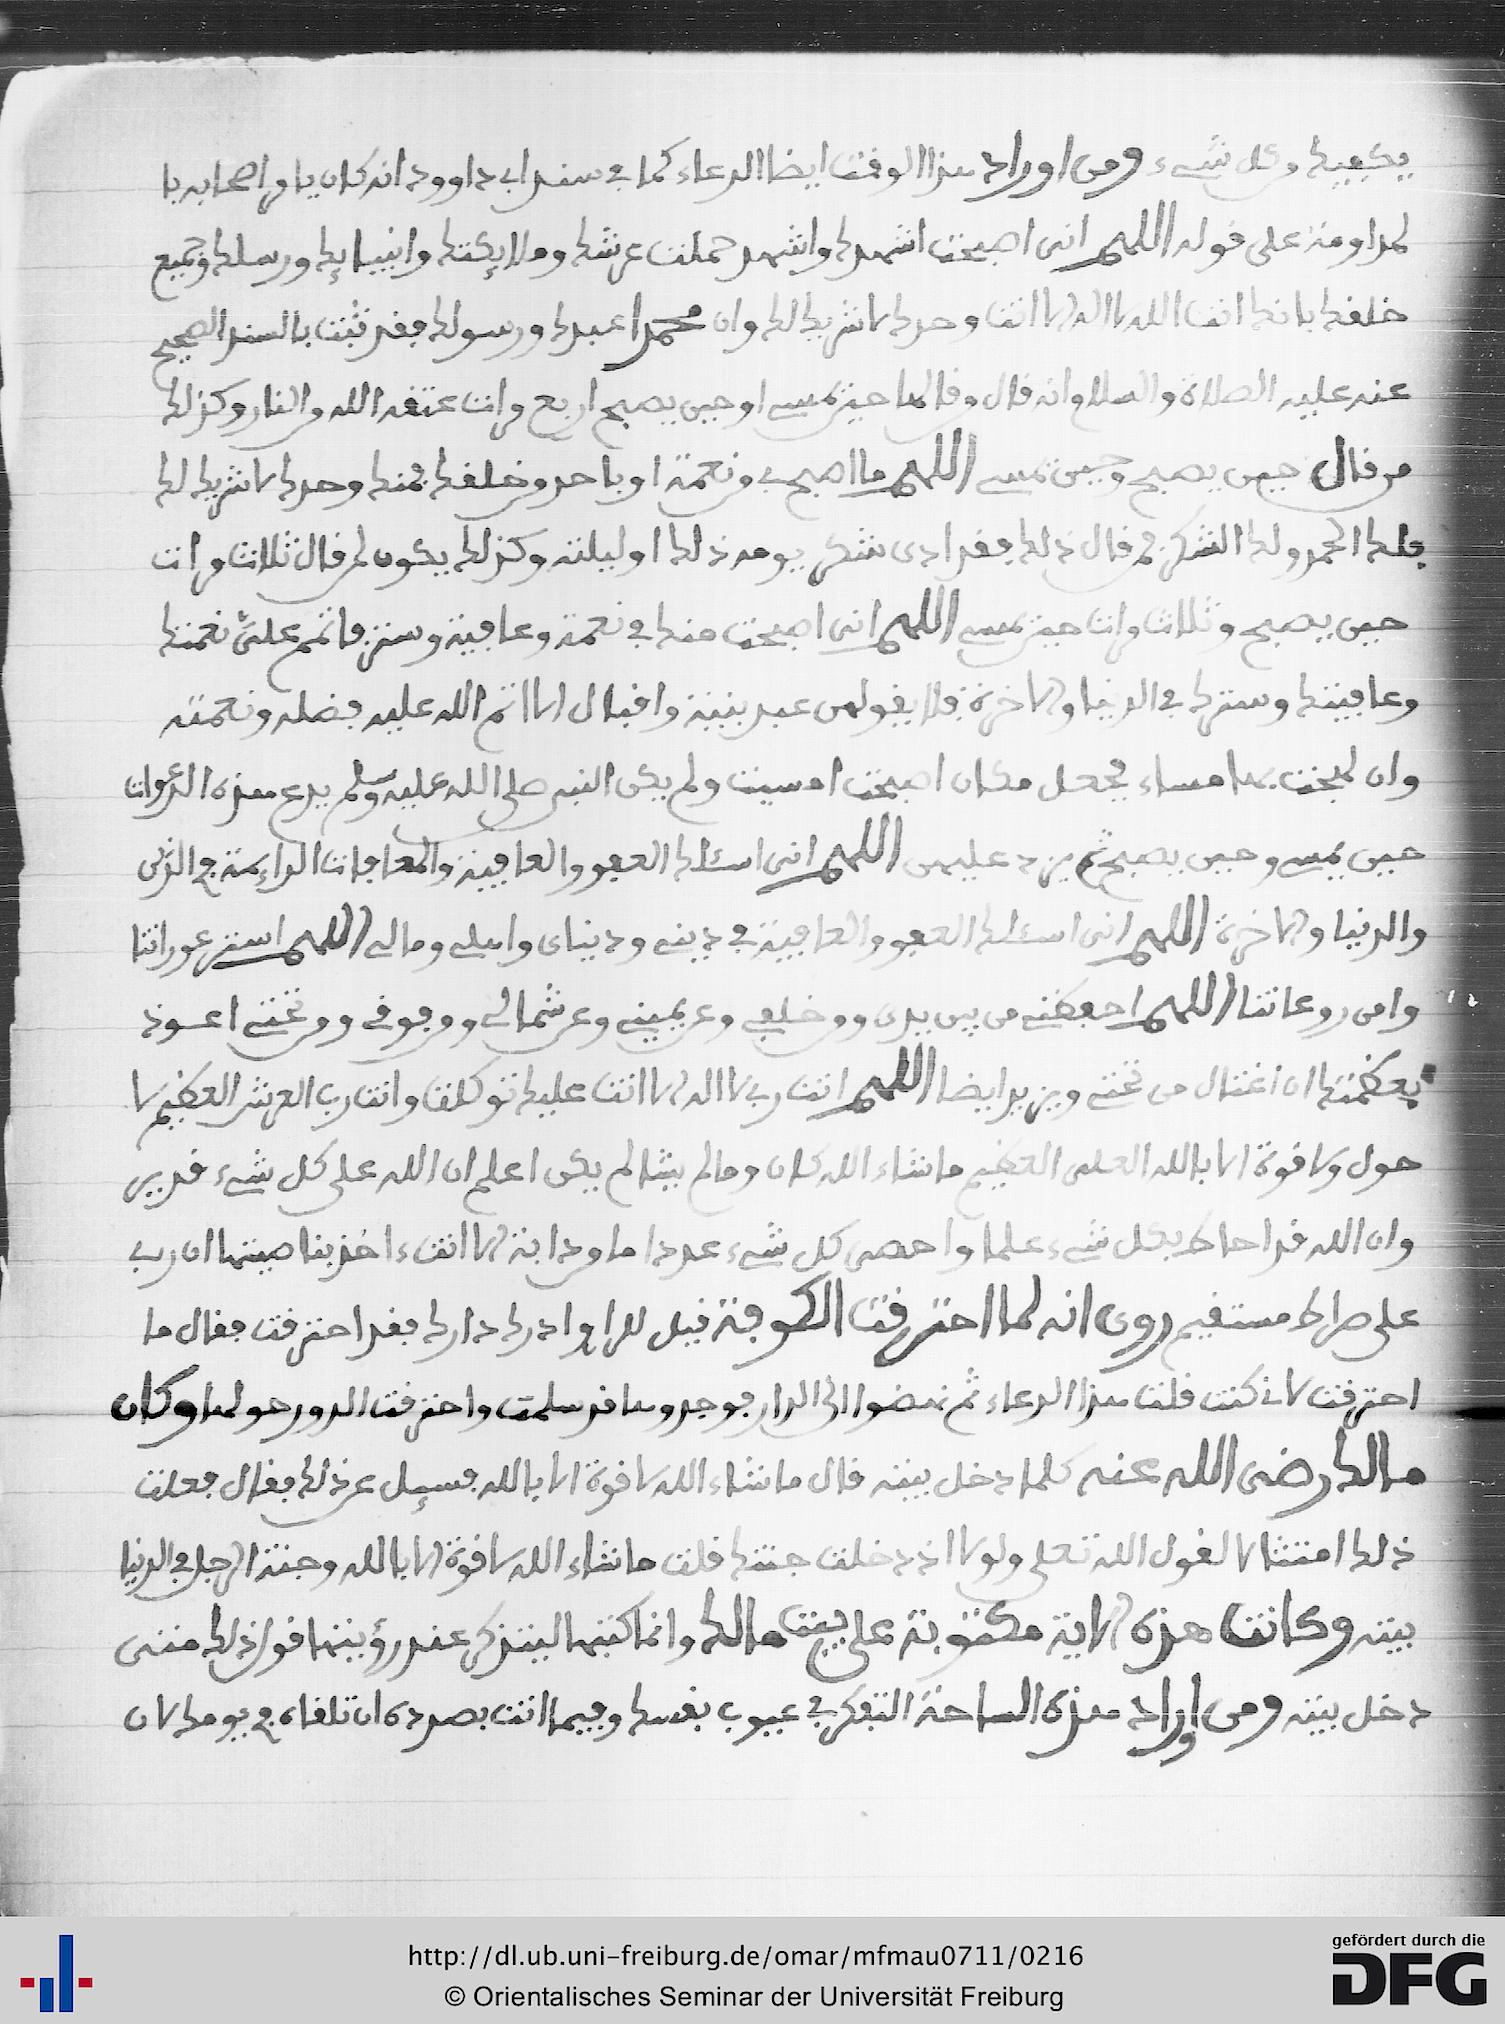 يكفيك من كل شيء ومن اوراد هذا الوقت ايضا الدعاء كما في سنن ابي داوود انه كان يامر اصحابه با
لمداومة على قوله اللهم اني اصبحت اشهدك واشهد حملت عرشك وملايكتك وانبيايك ورسلك وجميع
خلقك بانك انت الله لا اله الا انت وحدك لا شريك لك وان محمدا عبدك ورسولك فقد ثبت بالسند الصحيح
عنه عليه الصلاة والسلام انه قال من قالها حين يمسي او حين يصبح اربع مرات عتقه الله من النار وكذلك
من قال حين يصبح وحين يمسي اللهم ما اصبح بي من نعمة او باحد من خلقك فمنك وحدك لا شريك لك
فلك الحمد ولك الشكر فمن قال ذلك فقد ادى شكر يومه ذلك او ليلته وكذلك يكون لمن قال ثلاث مرات
حين يصبح وثلاث مرات حين يمسي اللهم اني اصبحت منك في نعمة وعافية وستر فاتمم علي نعمتك
وعافيتك وسترك في الدنيا والاخرة فلا يقولهن عبد بنية واقبال الا اتم الله عليه فضله ونعمته
وان مساء يجعل مكان اصبحت امسيت ولم يكن النبي صلى الله عليه وسلم يدع هذه الدعوات
حين يمسي وحين يصبح ثم يزد عليهن اللهم اني اسئلك العفو والعافية والمعافات الدايمة في الدين
والدنيا والاخرة اللهم اني اسئلك العفو والعافية في ديني ودنياي واهلي ومالي اللهم استر عوراتنا
وامن روعاتنا اللهم احفظني من بين يدي ومن خلفي وعن يميني وعن شمالي ومن فوقي ومن تحتي اعوذ
بعظمتك ان اغتال من تحتي ويزيد ايضا اللهم انت ربي لا اله الا انت عليك توكلت وانت رب العرش العظيم لا
حول ولا قوة الا بالله العلي العظيم ما شاء الله كان وما لم يشا لم يكن اعلم ان الله على كل شيء قدير
وان الله قد احاط بكل شيء علما واحصى كل شيء عددا ما من دابة الا انت ءاخذ بناصيتها ان ربي
على صراط مستقيم روي انه لما احترقت الكوفة قيل للراوي ادرك دارك فقد احترقت فقال ما
احترقت لاني كنت قلت هذا الدعاء ثم نهضوا الى الدار فوجدوها قد سلمت واحترقت الدور حولها وكان
مالك رضي الله عنه كلما دخل بيته قال ما شاء الله لا قوة الا بالله فسيل عن ذلك فقال فعلت
ذلك امتثالا لقول الله تعلى ولولا اذ دخلت جنتك قلت ما شاء الله لا قوة الا بالله وجنة الرجل في الدنيا
بيته وكانت هذه الاية مكتوبة على بيت مالك وانما كتبها ليتذكر عند رؤيتها قول ذلك متى
دخل بيته ومن اوراد هذه الساعة التفكر في عيوب نفسك وفيما انت بصدده ان تلقاه في يومك لان
http://dl.ub.uni-freiburg.de/omar/mfmau0711/0216
© Orientalisches Seminar der Universität Freiburg
gefördert durch die
DFG